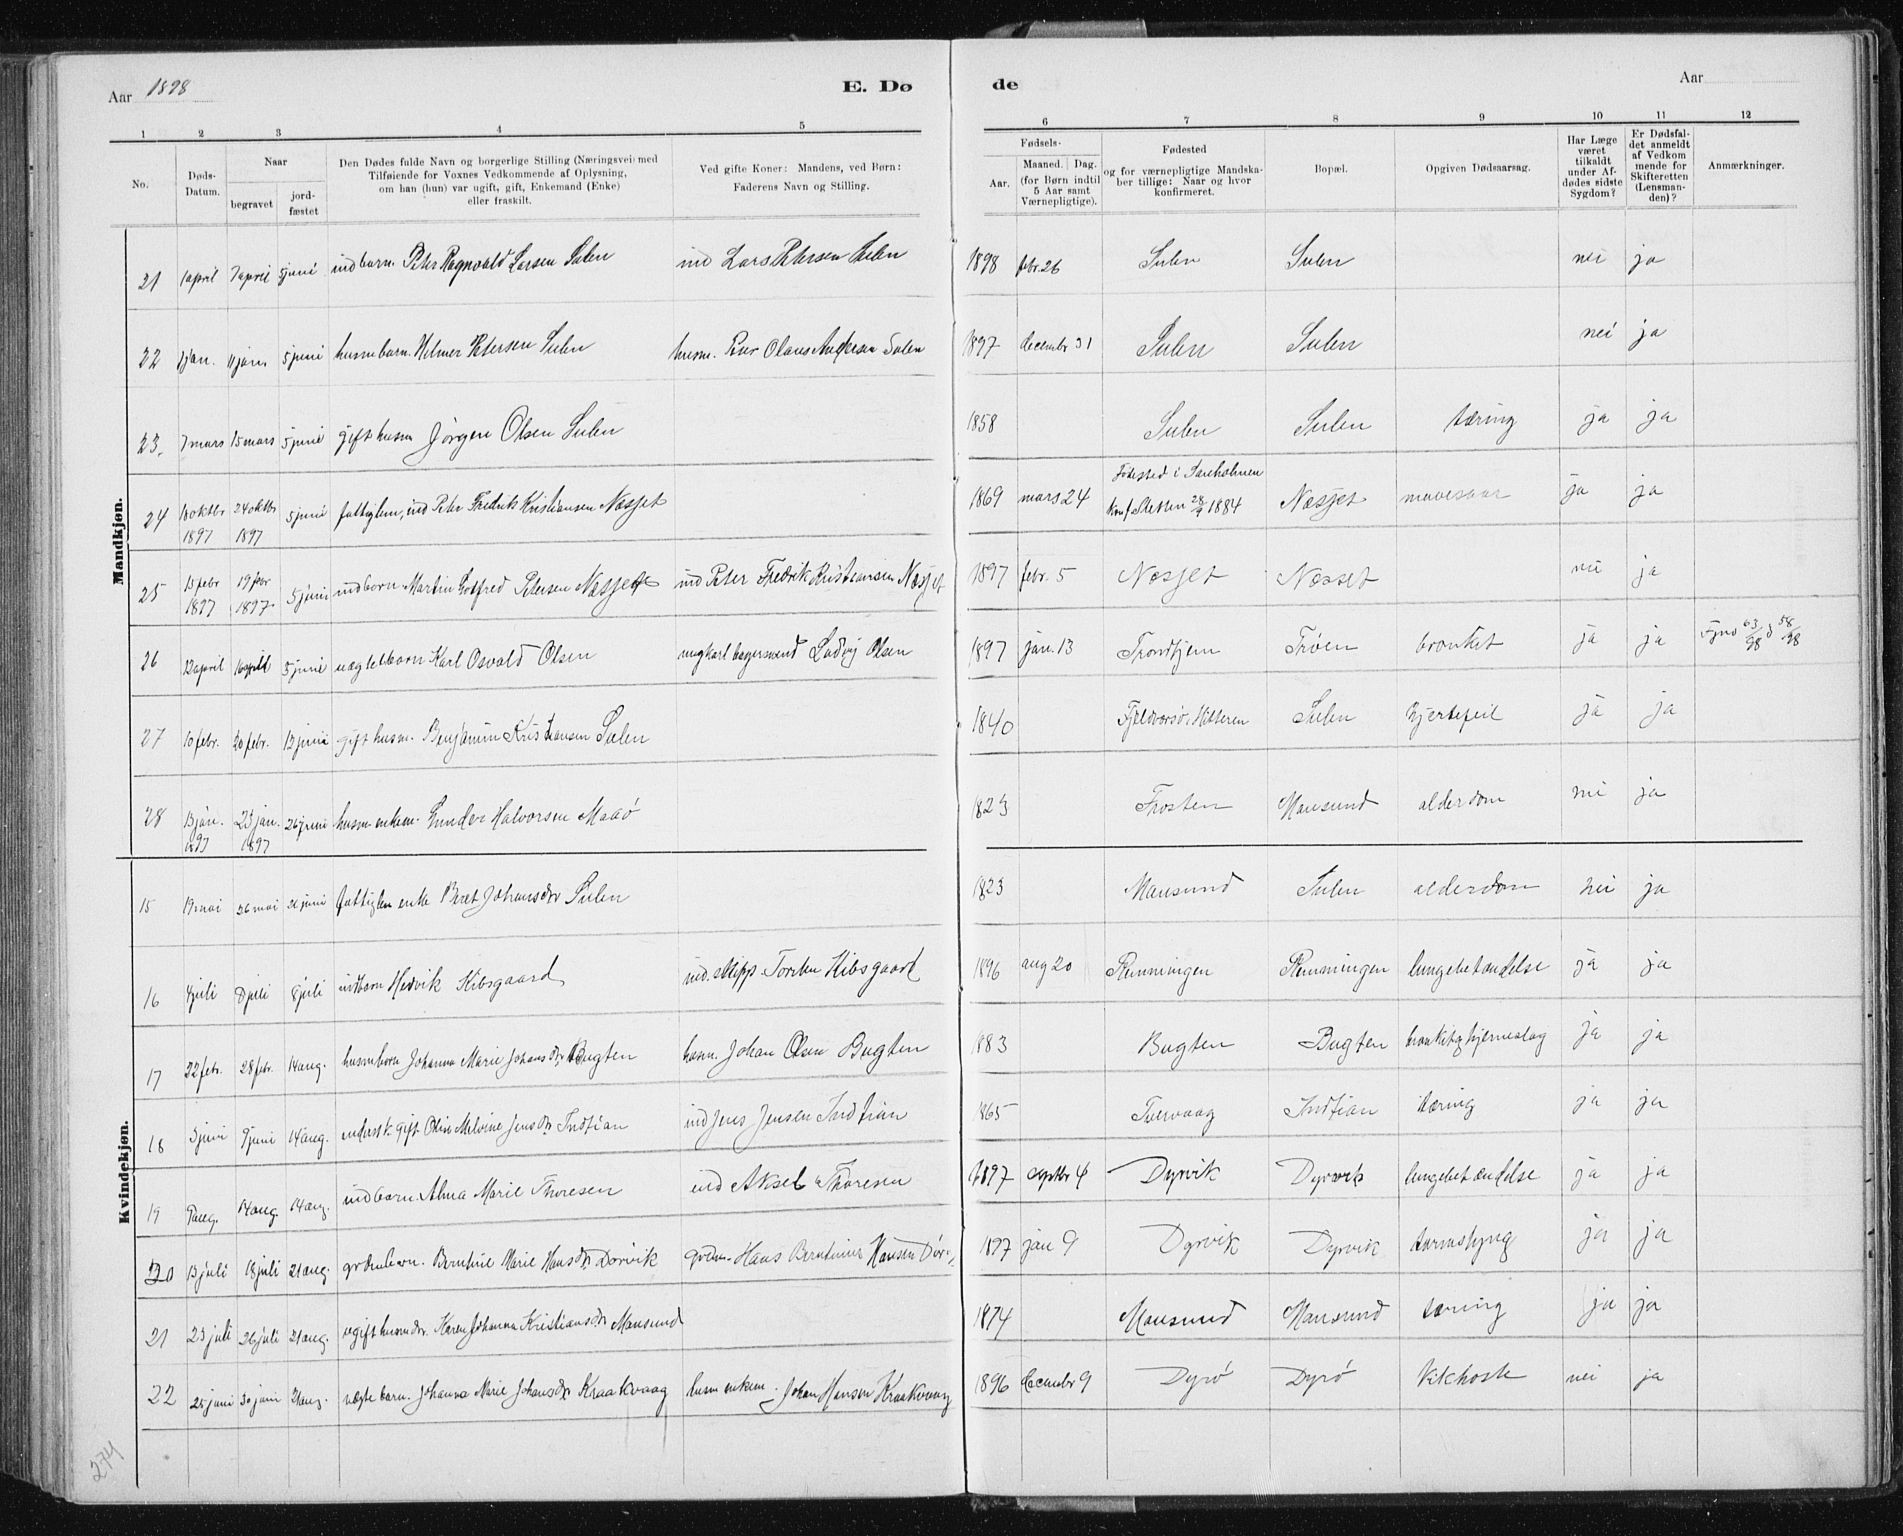 Aar 1898
E. Dø
de
Aar
1 2 3 4 5 6 7 8 9 10 11 12
No.
Døds-Datum.
Naar
begravet
jord-fæstet
Den Dødes fulde Navn og borgerlige Stilling (Næringsvei) med
Tilføiende for Voxnes Vedkommende af Oplysning,
om han (hun) var ugift, gift, Enkemand (Enke)
eller fraskilt.
Ved gifte Koner: Mandens, ved Børn:
Faderens Navn og Stilling.
Fødsels-
Aar.
Maaned. Dag.
(for Børn indtil
5 Aar samt
Værnepligtige).
Fødested
og for værnepligtige Mandska-
ber tillige: Naar og hvor
konfirmeret.
Bopæl.
Opgiven Dødsaarsag.
Har Læge
været
tilkaldt
under Af-
dødes sidste
Sygdom?
Er Dødsfal-
det anmeldt
af Vedkom
mende for
Skifteretten
(Lensman-
den)?
Anmærkninger.
Mandkjøn.
21 1 april 7 april 5 juni indbarn. Peter Ragnvald Larsen Sulen ind Lars Petersen Sulen 1898 febr. 26 Sulen Sulen nei ja
22 1 jan. 11 jan. 5 juni husmbarn. Helmer Petersen Sulen husm. Peter Olaus Andersen Sulen 1897 december 31 Sulen Sulen nei ja
23. 7 mars 15 mars 5 juni gift husm Jørgen Olsen Sulen 1858 Sulen Sulen tæring ja ja
24 18 oktbr 1897 24 oktbr 1897 5 juni fattiglem, ind Peter Fredrik Kristiansen Næsset 1869 mars 24 Fødested i
konf Sletten 28/9 1884 Næsset mavesaar ja ja
25 13 febr 1897 19 febr 1897 5 juni indbarn Martin Gotfred Petersen Næsset ind Peter Fredrik Kristiansen Næsset 1897 febr. 5 Næsset Næsset nei ja
26 12 april 16 april 5 juni uægtebarn Karl Osvald Olsen ungkarl bagersvend Ludvig Olsen 1897 jan. 13 Trondhjem Trøen bronkit ja ja 63/98 58/98
27 10 febr. 20 febr. 12 juni gift husm. Benjamin Kristiansen Sulen 1840 Fjeldværsø, Hitteren Sulen hjertefeil ja ja
28 13 jan. 1897 23 jan. 1897 26 juni husm enkem. Gunder Halvorsen Maaø 1823 Frosten Mausund alderdom nei ja
Kvindekjøn.
15 19 mai 26 mai 26 juni fattiglem enke Beret Johansdr Sulen 1823 Mausund Sulen alderdom nei ja
16 4 juli 8 juli 8 juli indbarn Hedvik Kibsgaard ind. skipp. Torsten Kibsgaard 1896 aug 20 Remmingen Remmingen lungebetændelse ja ja
17 22 febr. 28 febr. 14 aug. husmbarn Johanna Marie Johansdr Bugten husm. Johan Olsen Bugten 1883 Bugten Bugten bronkit og hjerneslag ja ja
18 3 juni 9 juni 14 aug. gift Oline Melvine Jensdr Indtian ind Jens Jensen Indtian 1865 Tuervaag Indtian tæring ja ja
19 7 aug. 14 aug. 14 aug. indbarn. Alma Marie Thoresen ind Aksel Thoresen 1897 septbr 4 Dyrvik Dyrvik lungebetændelse ja ja
20 13 juli 18 juli 21 aug. grdmbarn. Berntine Marie Hansdr Dørvik grdm. Hans Berntinus Hansen Dør 1897 jan 9 Dyrvik Dyrvik tarmslyng ja ja
21 23 juli 26 juli 21 aug. ugift husmdr. Karen Johanna Kristiansdr Mausund 1874 Mausund Mausund tæring ja ja
22 25 juni 30 juni 21 aug. ægte barn. Johanna Marie Johansdr Kraakvaag husm enkem. Johan Hansen Kraakvaag 1896 december 9 Dyrø Dyrø kikhoste nei ja
274